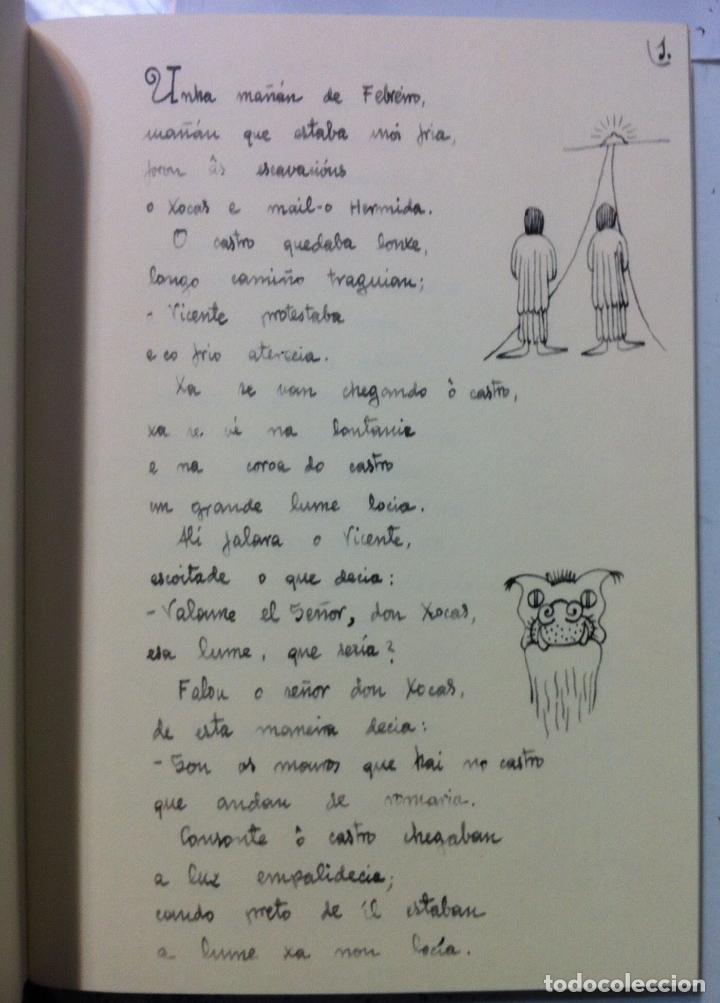 1.
Unha mañán de Febreiro,
mañán que estaba moi fria,
foron âs escavacións
o Xocas e mail-o Hermida.
O castro quedaba lonxe,
longo camiño traguian;
- Vicente protestaba
e co frio aterecia.
Xa se van chegando ô castro,
xa se vé na lontania
e na coroa do castro
un grande lume locia.
Alí falara o Vicente,
escoitade o que decia:
- Valoume el Señor, don Xocas,
esa lume, que sería?
Falou o señor don Xocas,
de esta maneira decia:
- Son os mouros que hai no castro
que andan de romaria.
Consonte ô castro chegaban
a luz empalidecia;
cando preto de él estaban
a lume xa non locía.
todocoleccion